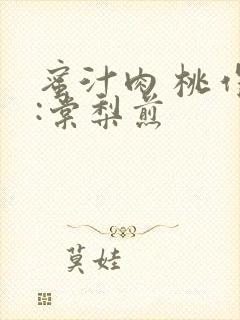 蜜汁肉桃 作
:棠梨煎
莫娃